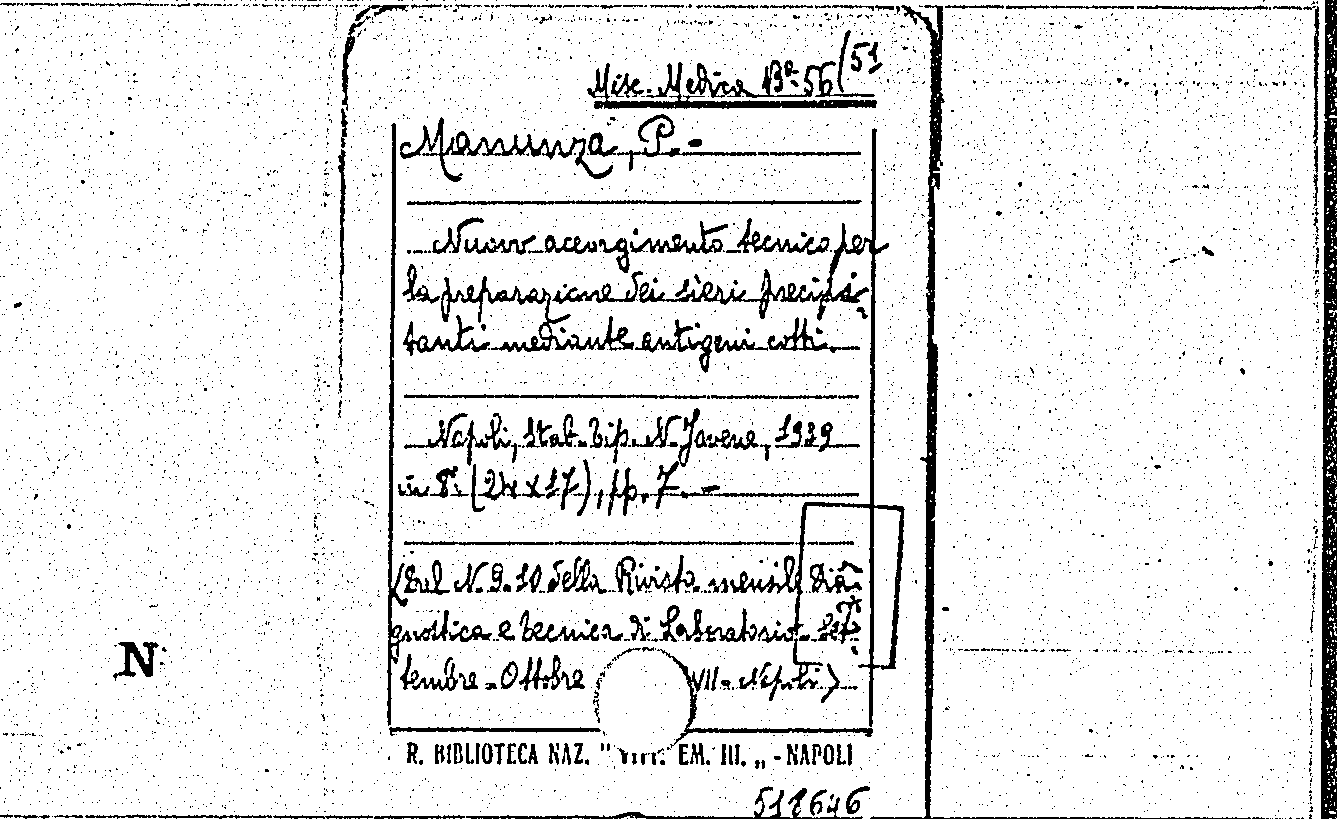 Misc. Medica Bª 56/51
Manunza, P. -
Nuovo accorgimento tecnico per
la preparazione dei sieri precipi-
tanti mediante antigeni cotti.
Napoli, Stab. Tip. N. Jovene, 1939
in 8°. (24x17), pp. 7. -
(Dal N. 9-10 della Rivista mensile Dia-
gnostica e Tecnica di Laboratorio - Set-
tembre - Ottobre VII - Napoli)
N
R. BIBLIOTECA NAZ. " VITT. EM. III. „ - NAPOLI
518646